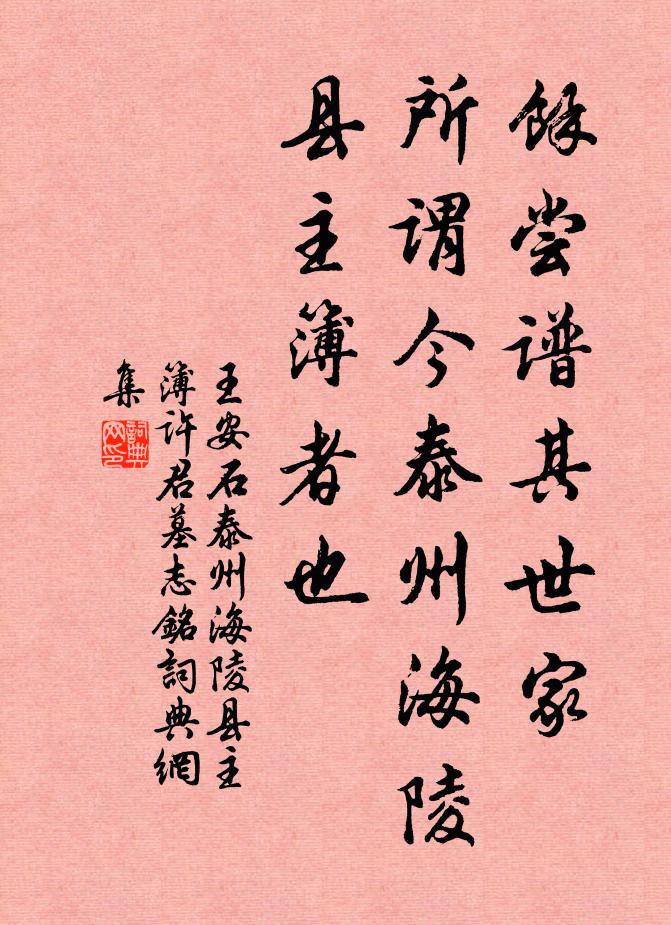 餘尝谱其世家
所谓今泰州海陵
县主簿者也
王安石泰州海陵县主
簿许君墓志銘詞典網
集
詞典
网印